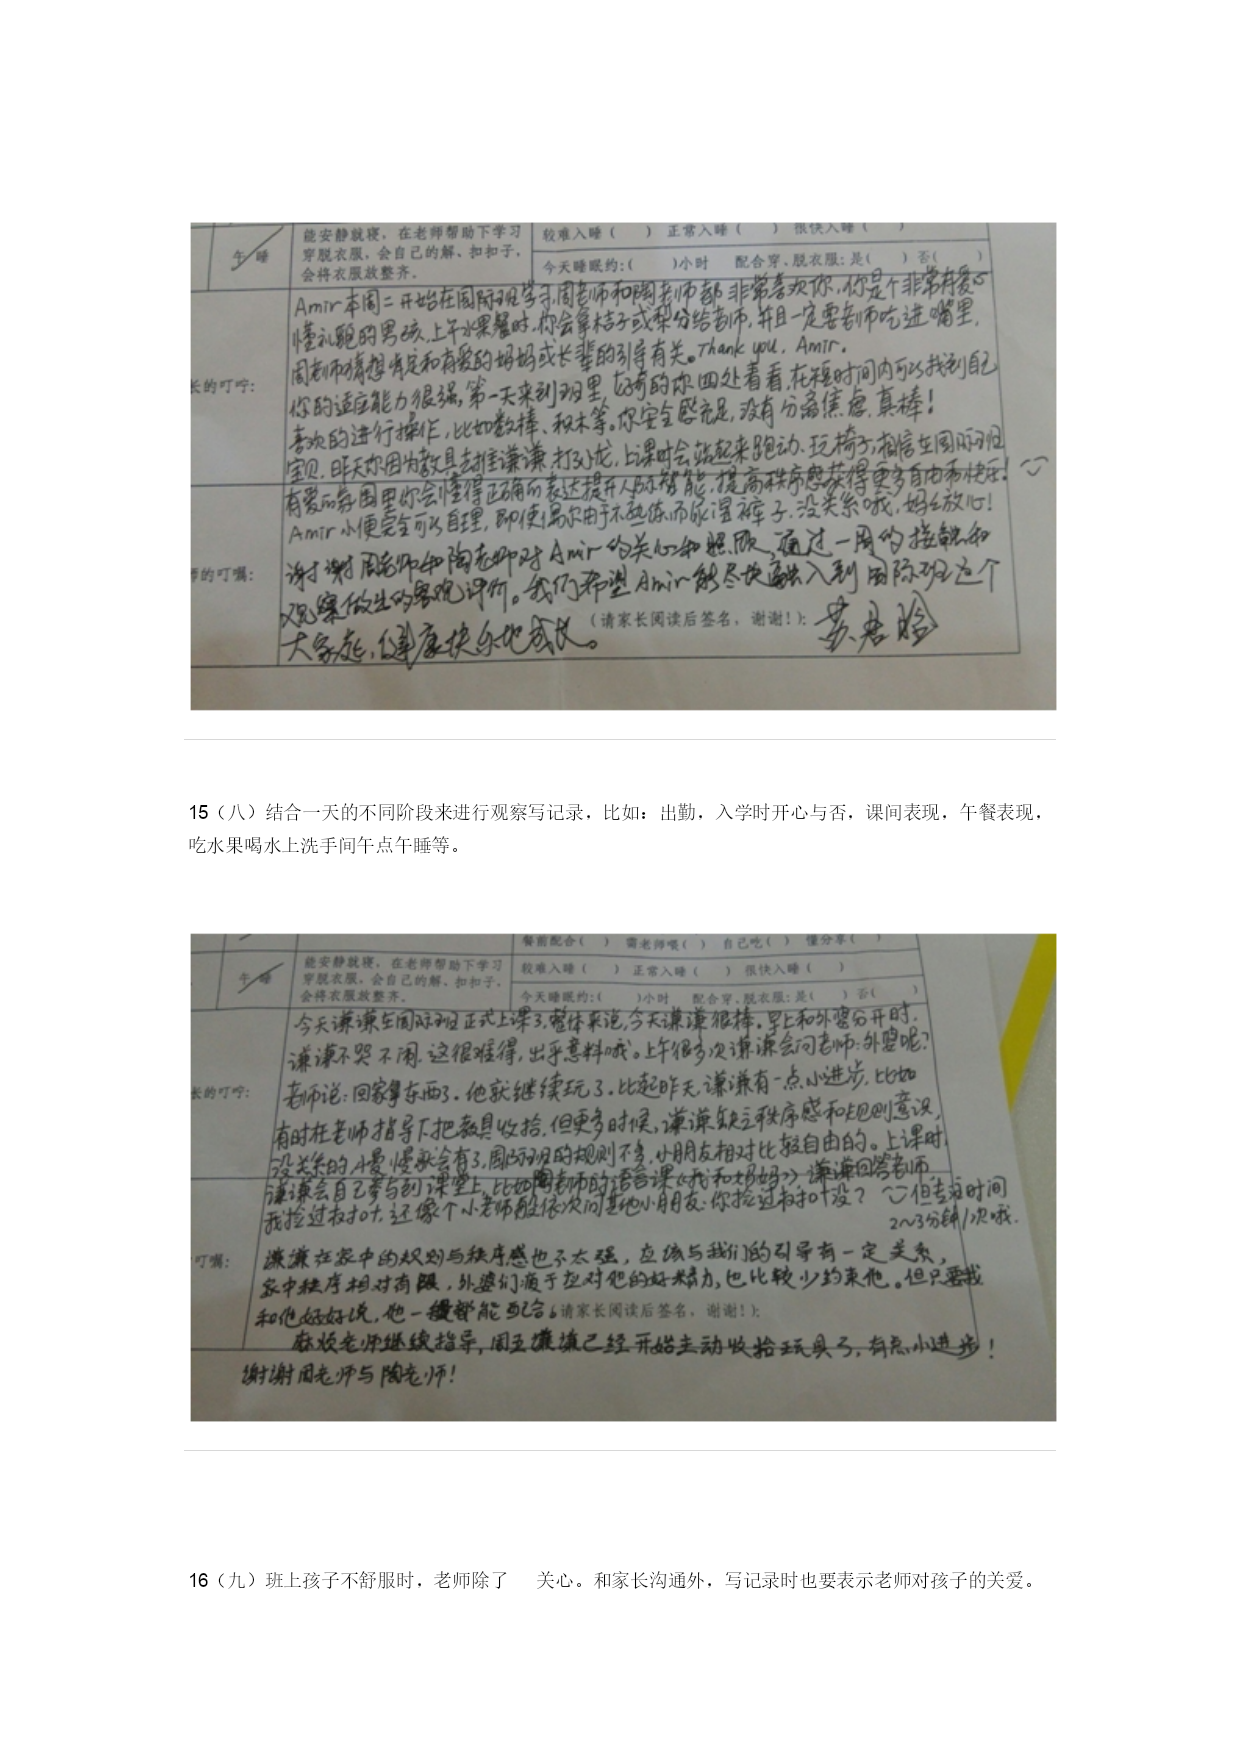 能安静就寝，在老师帮助下学习 较难入睡（ ）正常入睡（ ）很快入睡（ ）
午睡 穿脱衣服，会自己的解、扣扣子，
会将衣服放整齐。 今天睡眠约：( )小时 配合穿、脱衣服：是( ) 否( )
Amir本周二开始在国际班学习，周老师和陶老师都非常喜欢你，你是个非常有爱心
懂礼貌的男孩，上午水果餐时，你会拿桔子或梨分给老师，并且一定要老师吃进嘴里，
周老师猜想肯定和有爱的妈妈或长辈的引导有关。Thank you, Amir.
长的叮咛：
你的适应能力很强，第一天来到班里，好奇的你四处看看，在短时间内可以找到自己
喜欢的进行操作，比如数棒、积木等。你安全感充足，没有分离焦虑，真棒！
宝贝，昨天你因为教具去推谦谦，打小龙，上课时会站起来跑动、玩椅子，相信在国际班
有爱的氛围里你会懂得正确的表达提升人际智能，提高秩序感获得更多自由和快乐！
Amir小便完全可以自理，即使偶尔由于不熟练而尿湿裤子，没关系哦，妈妈放心！
师的叮嘱：
谢谢周老师和陶老师对Amir的关心和照顾，通过一周的接触和
观察做出的客观评价。我们希望Amir能尽快融入到国际班这个
（请家长阅读后签名，谢谢！）：
大家庭，健康快乐地成长。
15（八）结合一天的不同阶段来进行观察写记录，比如：出勤，入学时开心与否，课间表现，午餐表现，
吃水果喝水上洗手间午点午睡等。
餐前配合( ) 需老师喂( ) 自己吃( ) 懂分享( )
能安静就寝，在老师帮助下学习 较难入睡（ ）正常入睡（ ）很快入睡（ ）
午睡 穿脱衣服，会自己的解、扣扣子，
会将衣服放整齐。 今天睡眠约：( )小时 配合穿、脱衣服：是( ) 否( )
今天谦谦在国际班正式上课了，整体来说，今天谦谦很棒。早上和外婆分开时，
谦谦不哭不闹，这很难得，出乎意料哦。上午很多次谦谦会问老师：外婆呢？
长的叮咛：
老师说：回家拿东西了。他就继续玩了。比起昨天，谦谦有一点小进步，比如
有时在老师指导下把教具收拾，但更多时候，谦谦缺乏秩序感和规则意识，
没关系的，慢慢就会有了，国际班的规则不多，小朋友相对比较自由的。上课时
谦谦会自己参与到课堂上，比如陶老师的语言课《我和妈妈》，谦谦回答老师，
我捡过树叶，还像个小老师般依次问其他小朋友：你捡过树叶没？ 但专注时间
2～3分钟/次哦。
叮嘱：
谦谦在家中的规则与秩序感也不太强，应该与我们的引导有一定关系，
家中秩序相对有限，外婆们疲于应对他的好精力，也比较少约束他。但只要我
和他好好说，他一般都能配合。（请家长阅读后签名，谢谢！）：
麻烦老师继续指导，周五谦谦已经开始主动收拾玩具了，有点小进步！
谢谢周老师与陶老师！
16（九）班上孩子不舒服时，老师除了 关心。和家长沟通外，写记录时也要表示老师对孩子的关爱。